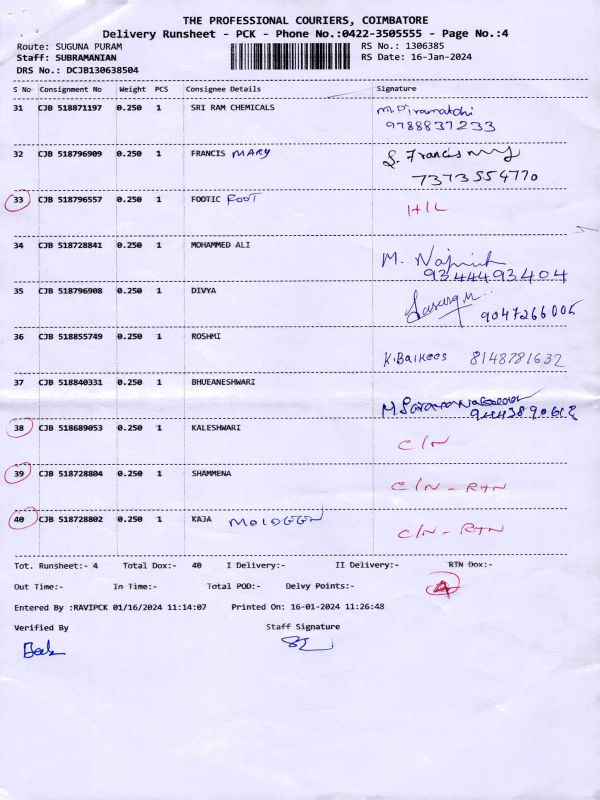 THE PROFESSIONAL COURIERS, COIMBATORE
Delivery Runsheet - PCK - Phone No.:0422-3505555 - Page No.:4
Route: SUGUNA PURAM RS No.: 1306385
Staff: SUBRAMANIAN RS Date: 16-Jan-2024
DRS No.: DCJB130638504
S No Consignment No Weight PCS Consignee Details Signature
31 CJB 518871197 0.250 1 SRI RAM CHEMICALS
9788837233
32 CJB 518796909 0.250 1 FRANCIS MARY S. Francis
7373554770
33 CJB 518796557 0.250 1 FOOTIC FOOT H/L
34 CJB 518728841 0.250 1 MOHAMMED ALI
M.
9344493404
35 CJB 518796908 0.250 1 DIVYA
9047266005
36 CJB 518855749 0.250 1 ROSHMI
K.Balkees 8148781632
37 CJB 518840331 0.250 1 BHUEANESHWARI
9443890612
38 CJB 518689053 0.250 1 KALESHWARI C/N
39 CJB 518728804 0.250 1 SHAMMENA C/N - RTN
40 CJB 518728802 0.250 1 KAJA MOIDEEN C/N - RTN
Tot. Runsheet:- 4 Total Dox:- 40 I Delivery:- II Delivery:- RTN Dox:-
Out Time:- In Time:- Total POD:- Delvy Points:- 4
Entered By :RAVIPCK 01/16/2024 11:14:07 Printed On: 16-01-2024 11:26:48
Verified By Staff Signature